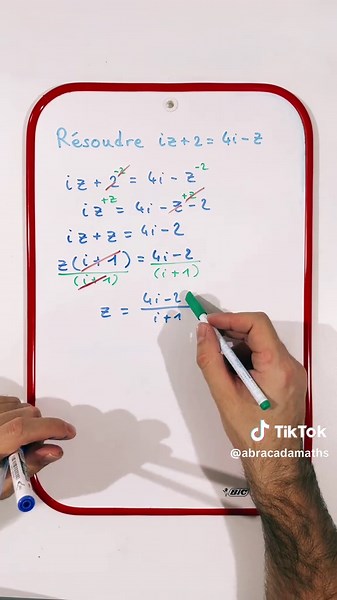 Résoudre iz+2=4i-z
iz+2⁻²=4i-z⁻²
iz⁺ᶻ=4i-z⁺ᶻ-2
iz+z=4i-2
z(i+1)/(i+1)=4i-2/(i+1)
z=4i-2/i+1
TikTok
@abracadamaths
BIC